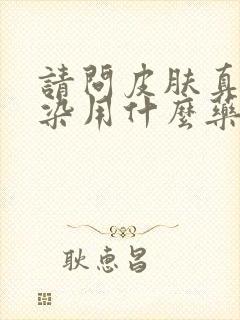 請問皮肤真
染用什麼藥
耿惠昌